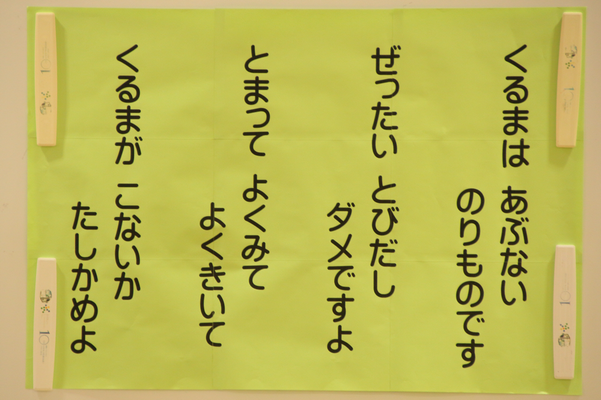 くるまは あぶない
のりものです
ぜったい とびだし
ダメですよ
とまって よくみて
よくきいて
くるまが こないか
たしかめよ